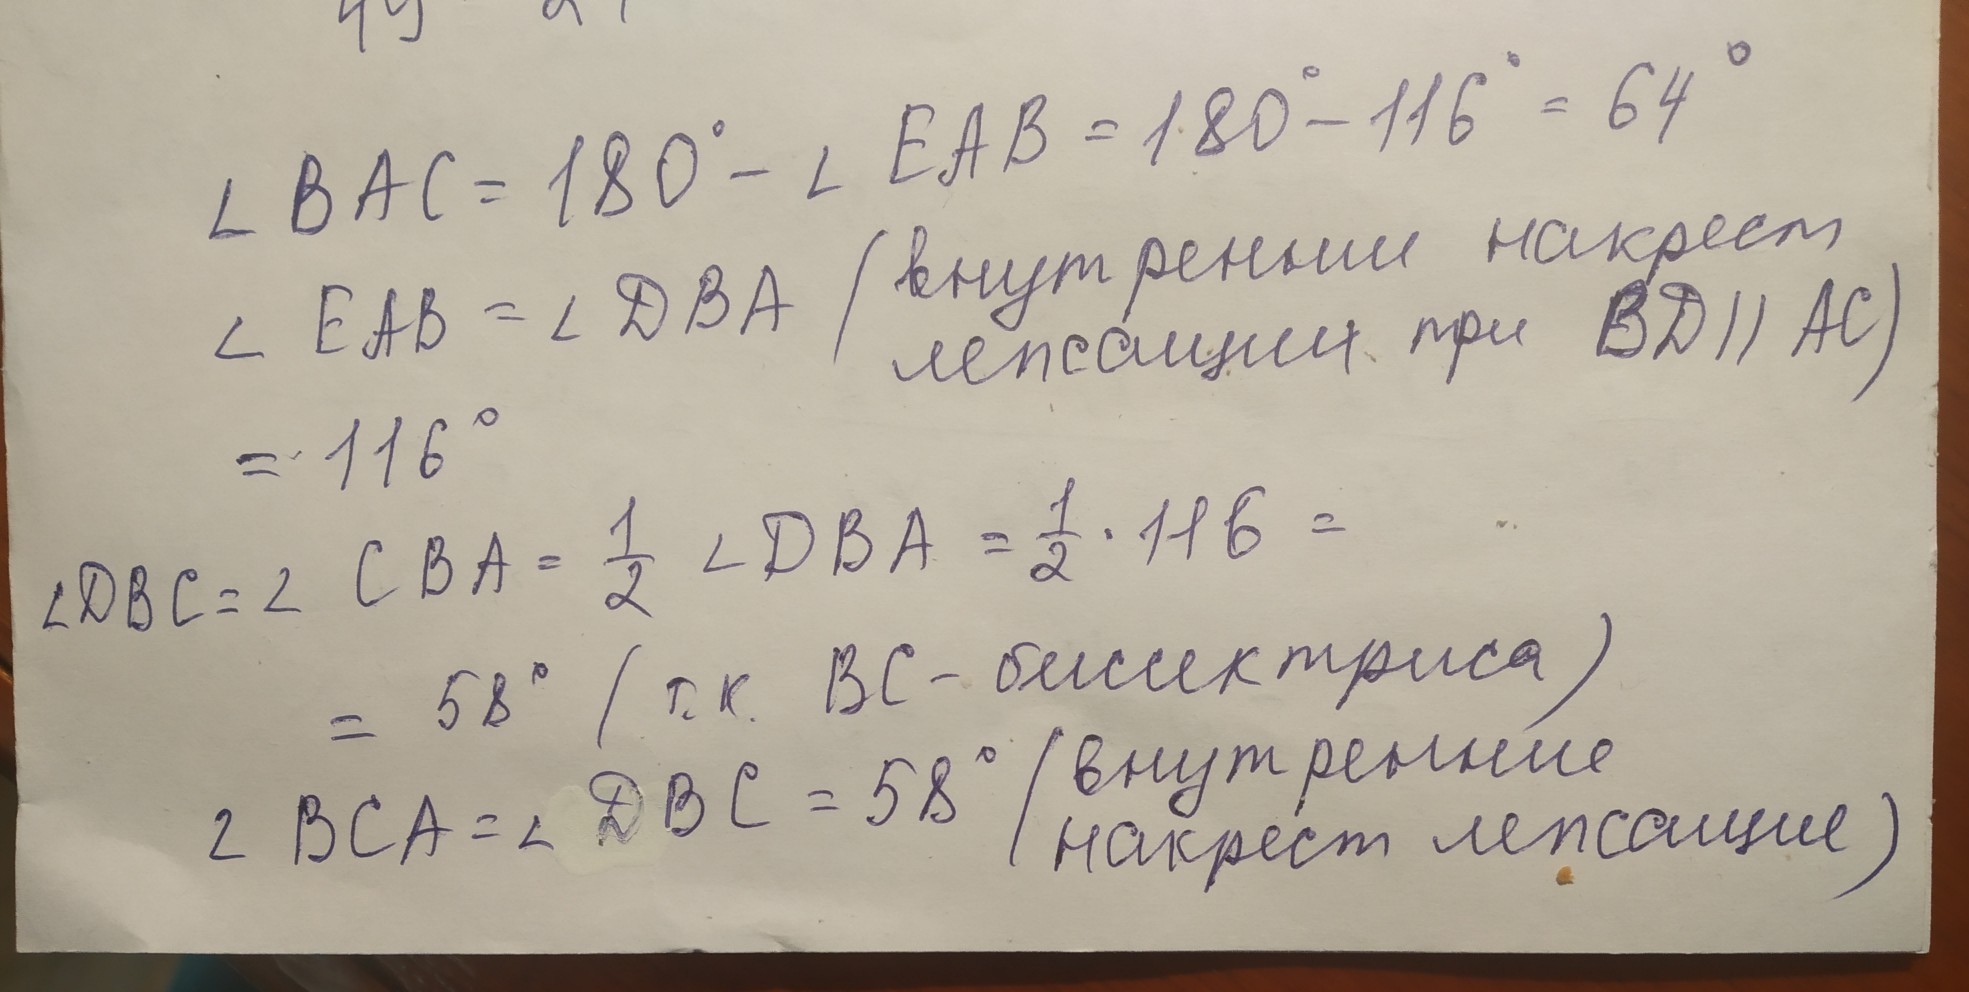 ∠ BAC = 180° - ∠ EAB = 180° - 116° = 64°
∠ EAB = ∠ DBA (внутренние накрест
лежащии при BD || AC)
= 116°
∠DBC = ∠ CBA = 1/2 ∠ DBA = 1/2 · 116 =
= 58° (т.к. BC - биссектриса)
∠ BCA = ∠ DBC = 58° (внутренние
накрест лежащие)